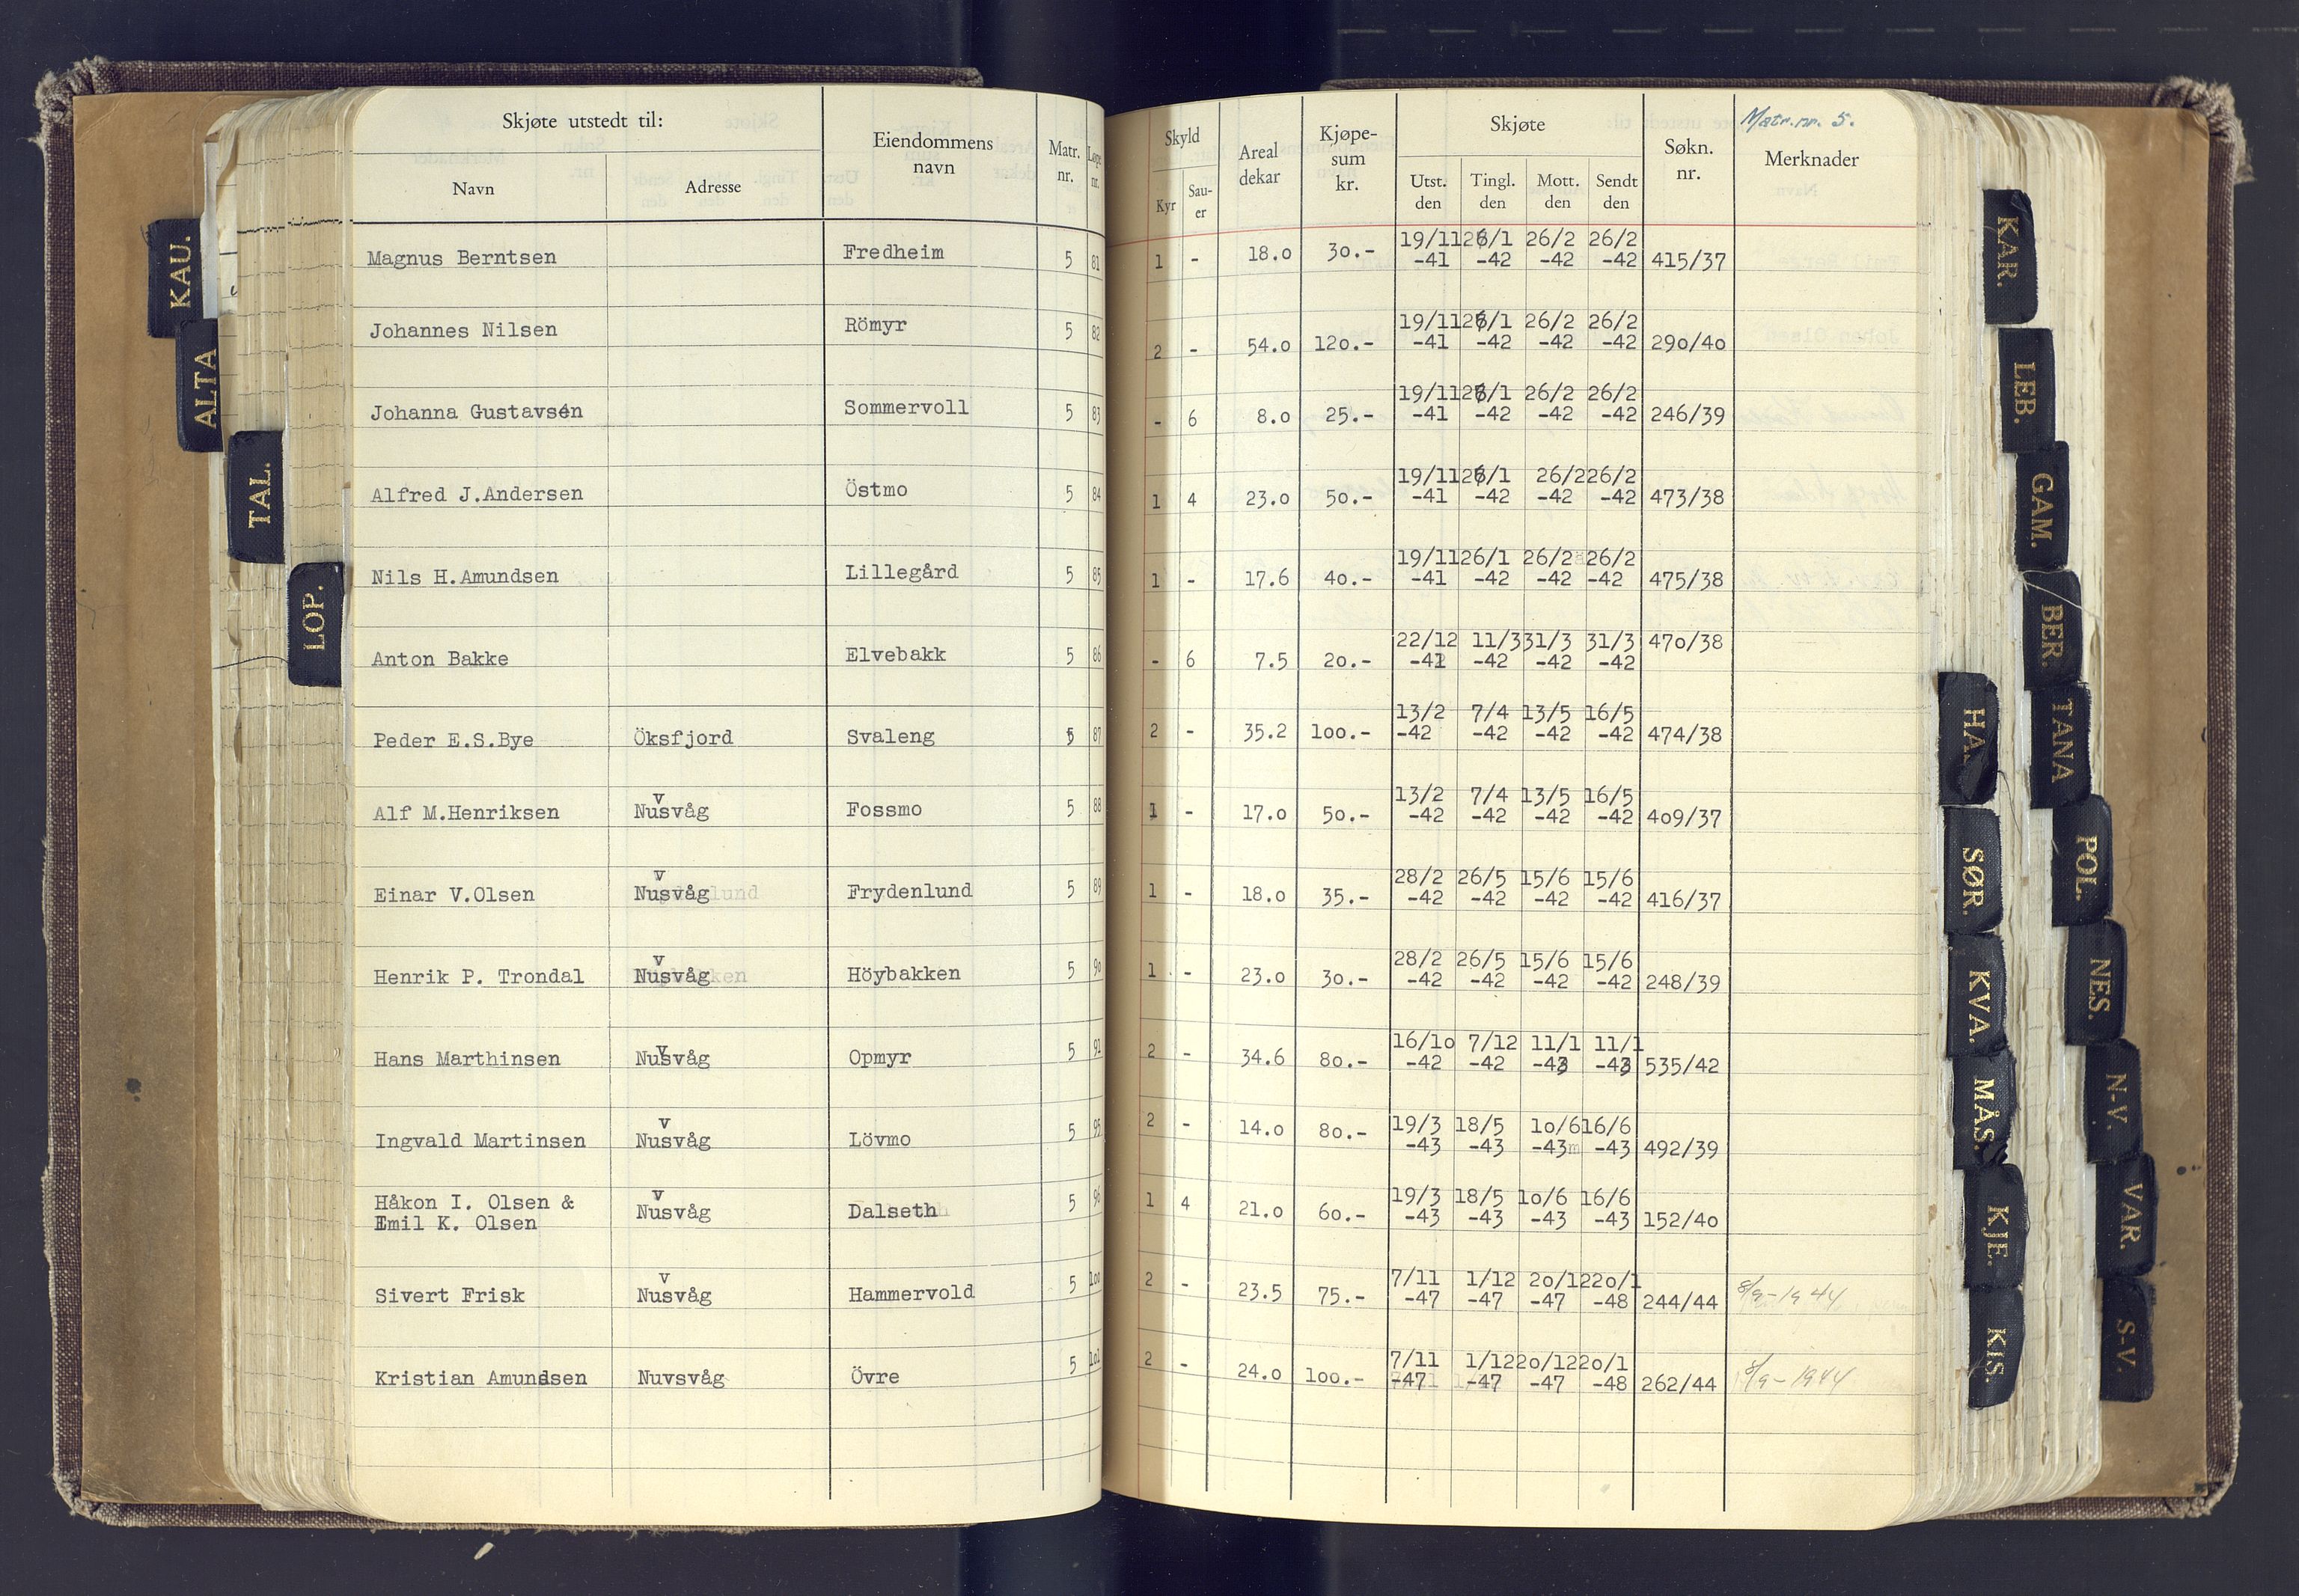 Skjøte utstedt til:
Navn
Adresse
Eiendommens
navn
Matr.
nr.
Løpe
nr.
Skyld
Kyr
Sau-
er
Areal
dekar
Kjøpe-
sum
kr.
Skjøte
Utst.
den
Tingl.
den
Mott.
den
Sendt
den
Søkn.
nr.
Matr.nr. 5.
Merknader
19/11 26/1 26/2 26/2
Magnus Berntsen Fredheim 5 81 1 - 18.0 30.- -41 -42 -42 -42 415/37
19/11 26/1 26/2 26/2
Johannes Nilsen Römyr 5 82 2 - 54.0 120.- -41 -42 -42 -42 290/40
19/11 26/1 26/2 26/2
Johanna Gustavsen Sommervoll 5 83 - 6 8.0 25.- -41 -42 -42 -42 246/39
19/11 26/1 26/2 26/2
Alfred J.Andersen Östmo 5 84 1 4 23.0 50.- -41 -42 -42 -42 473/38
19/11 26/1 26/2 26/2
Nils H.Amundsen Lillegård 5 85 1 - 17.6 40.- -41 -42 -42 -42 475/38
22/12 11/3 31/3 31/3 470/38
Anton Bakke Elvebakk 5 86 - 6 7.5 20.- -41 -42 -42 -42
13/2 7/4 13/5 16/5
Peder E.S.Bye Öksfjord Svaleng 5 87 2 - 35.2 100.- -42 -42 -42 -42 474/38
v 13/2 7/4 13/5 16/5
Alf M.Henriksen Nusvåg Fossmo 5 88 1 - 17.0 50.- -42 -42 -42 -42 409/37
v 28/2 26/5 15/6 15/6
Einar V.Olsen Nusvåg Frydenlund 5 89 1 - 18.0 35.- -42 -42 -42 -42 416/37
v 28/2 26/5 15/6 15/6
Henrik P. Trondal Nusvåg Höybakken 5 90 1 - 23.0 30.- -42 -42 -42 -42 248/39
v 16/10 7/12 11/1 11/1
Hans Marthinsen Nusvåg Opmyr 5 92 2 - 34.6 80.- -42 -42 -43 -43 535/42
v 19/3 18/5 10/6 16/6
Ingvald Martinsen Nusvåg Lövmo 5 95 2 - 14.0 80.- -43 -43 -43 -43 492/39
Håkon I. Olsen & v 19/3 18/5 10/6 16/6
Emil K. Olsen Nusvåg Dalseth 5 96 1 4 21.0 60.- -43 -43 -43 -43 152/40
v 7/11 1/12 20/12 20/1
Sivert Frisk Nusvåg Hammervold 5 100 2 - 23.5 75.- -47 -47 -47 -48 244/44 8/9-1944
7/11 1/12 20/12 20/1
Kristian Amundsen Nuvsvåg Övre 5 101 2 - 24.0 100.- -47 -47 -47 -48 262/44 8/9-1944
KAU.
ALTA
TAL.
LOP.
KAR.
LEB.
GAM.
BER.
TANA
POL.
NES.
N-V.
VAR.
S-V.
SØR.
KVA.
MÅS.
KJE.
KIS.